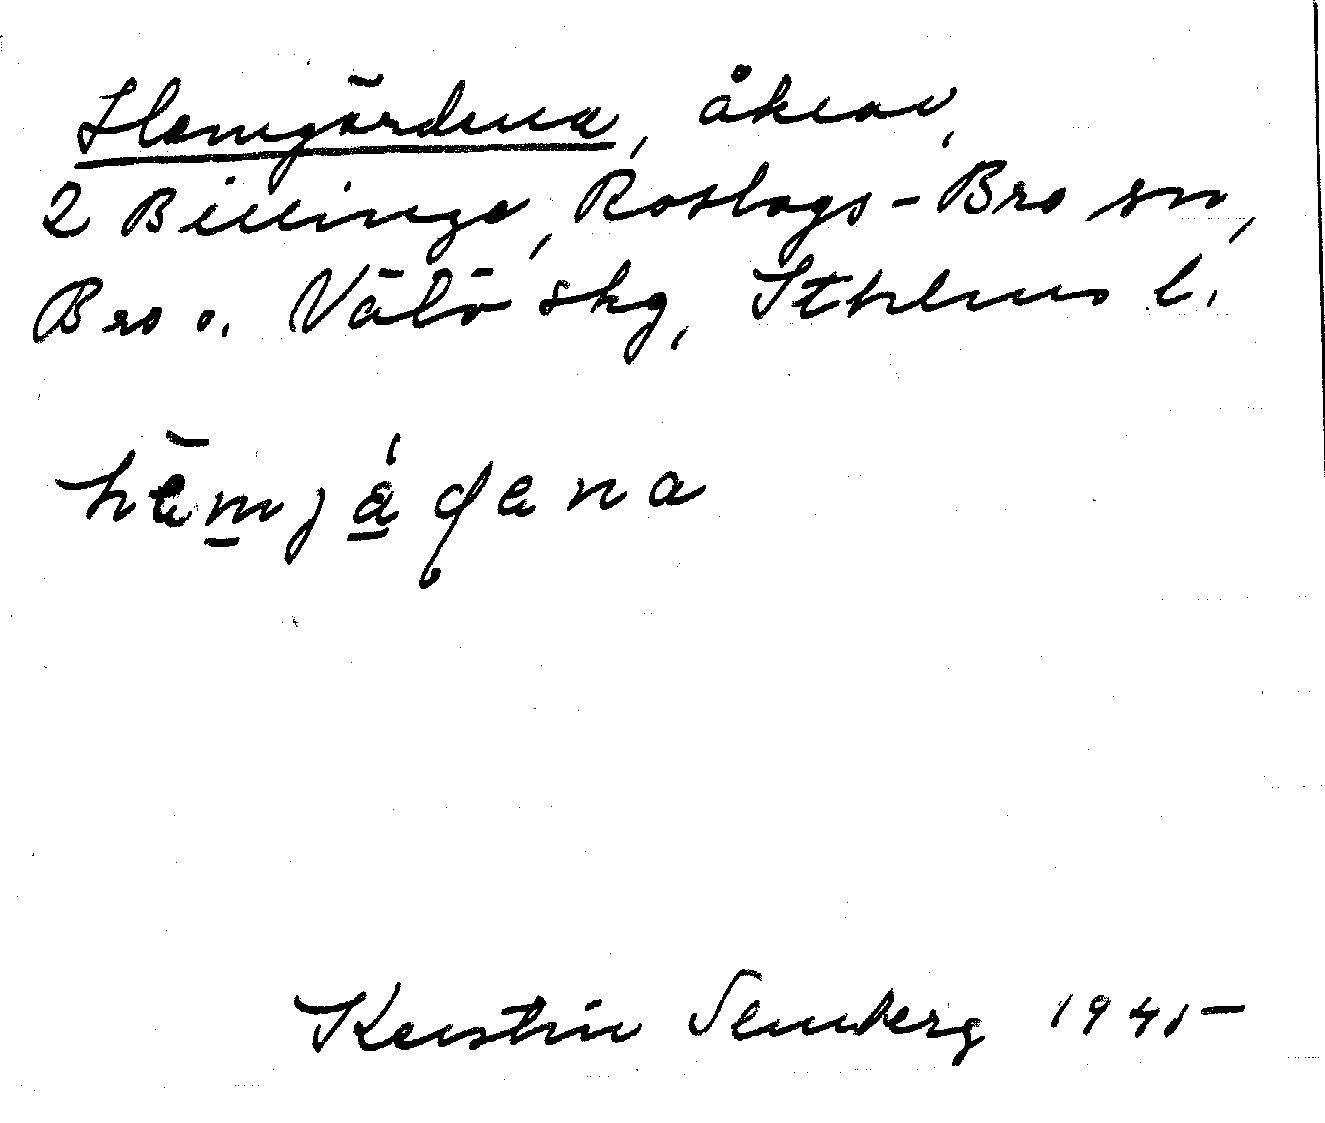 Hemgärdena, åkrar,
2 Billinge, Roslags-Bro sn,
Bro o. Vätö skg, Sthlms l.
hemjäḍena
Kerstin Stenberg 1945